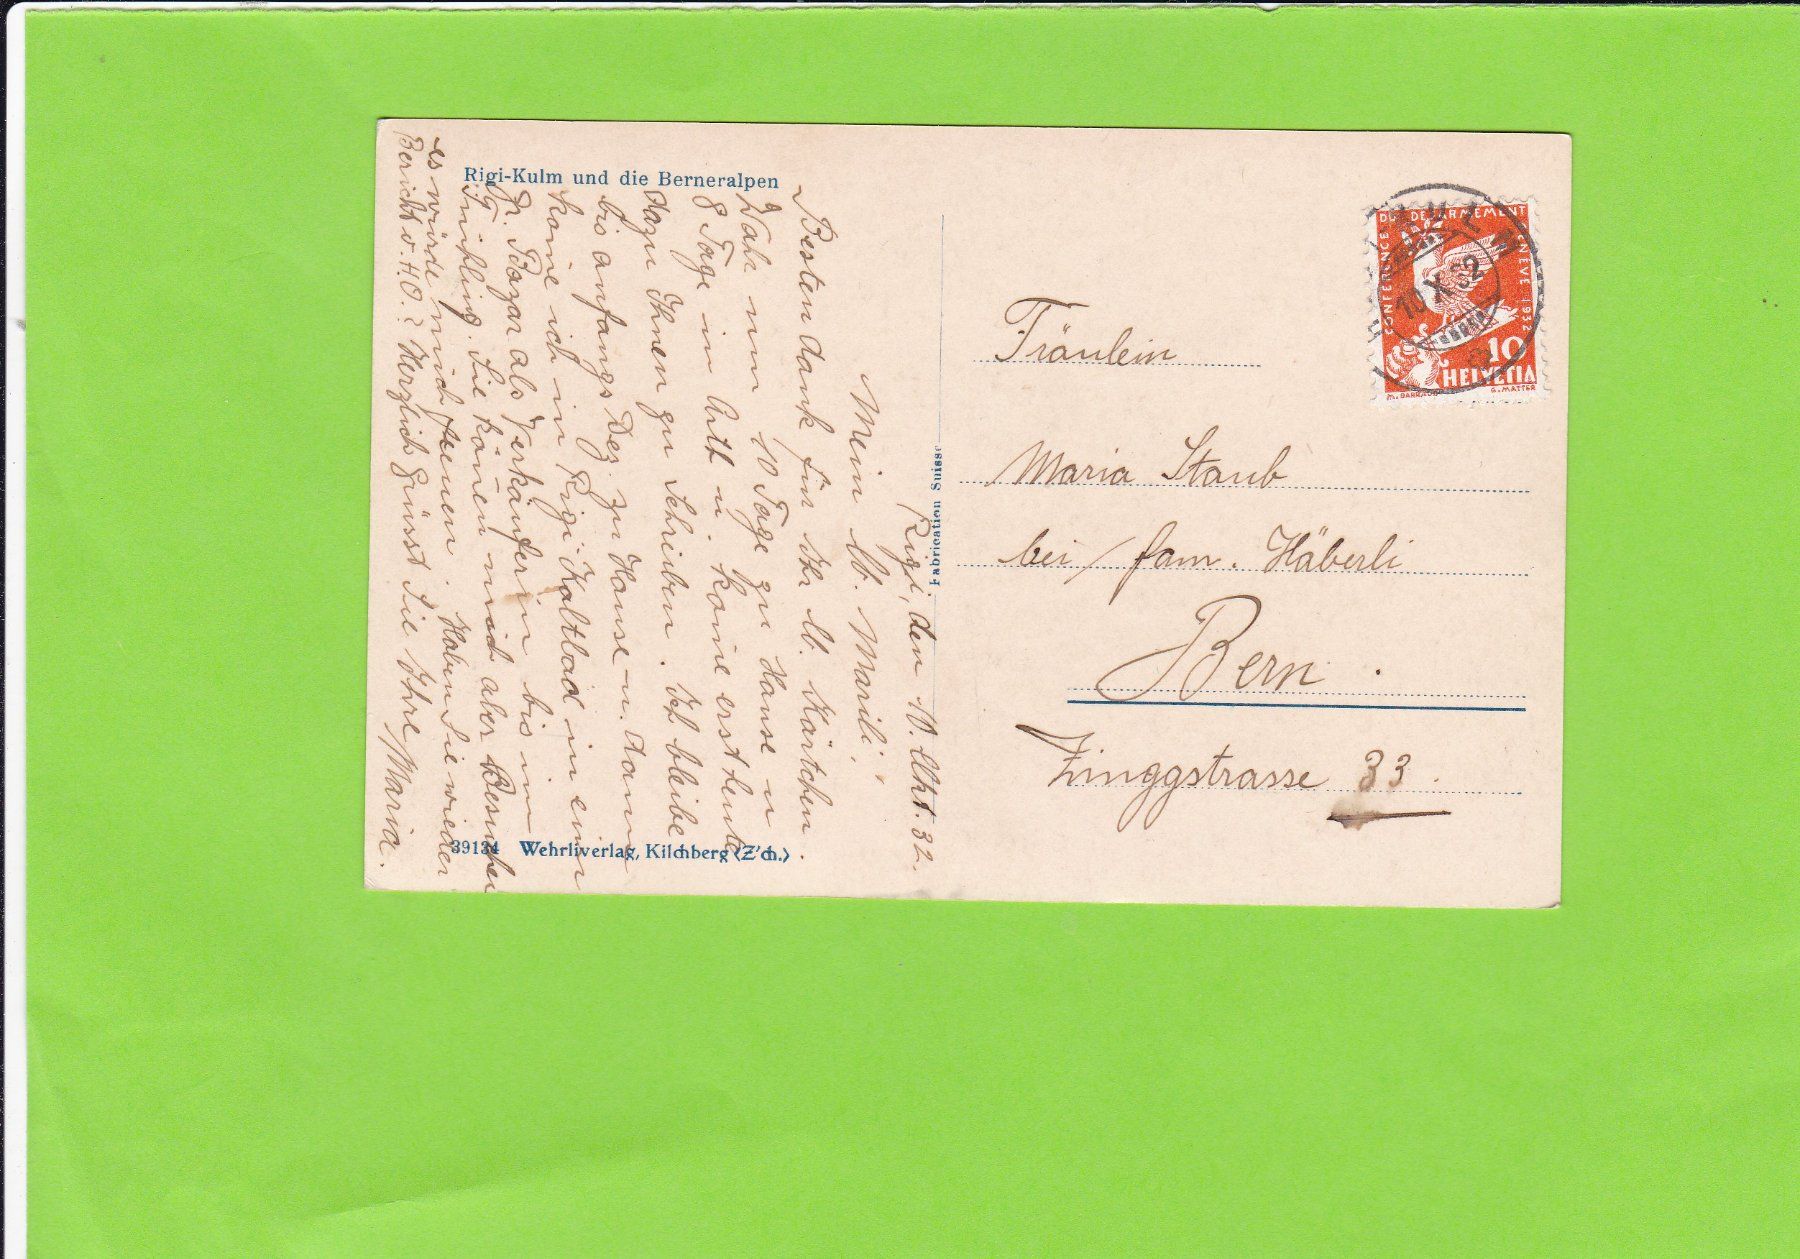 Rigi-Kulm und die Berneralpen
Rigi, den 10. Okt. 32.
Mein lb. Marili!
Besten Dank für Ihr lb. Kärtchen.
Wahr nun 10 Tage zu Hause u
8 Tage in Arth u. kome erst heute
dazu Ihnen zu schreiben. Ich bleibe
bis anfangs Dez. zu Hause u. dann
kome ich in Rigi-Kaltbad in ein
Gr. Bazar als Verkäuferin bis im
Frühling. Sie könen mich aber Besuchen
es würde mich freuen. Haben Sie wieder
Bericht v. HO? Herzlich Grüsst Sie Ihre Maria.
39134 Wehrliverlag, Kilchberg (Z'ch.)
Fabrication Suisse
CONFERENCE DU DESARMEMENT GENEVE 1932
10
HELVETIA
G. MATTER
10 X 32
Fräulein
Maria Staub
bei fam. Häberli
Bern.
Zinggstrasse 33.